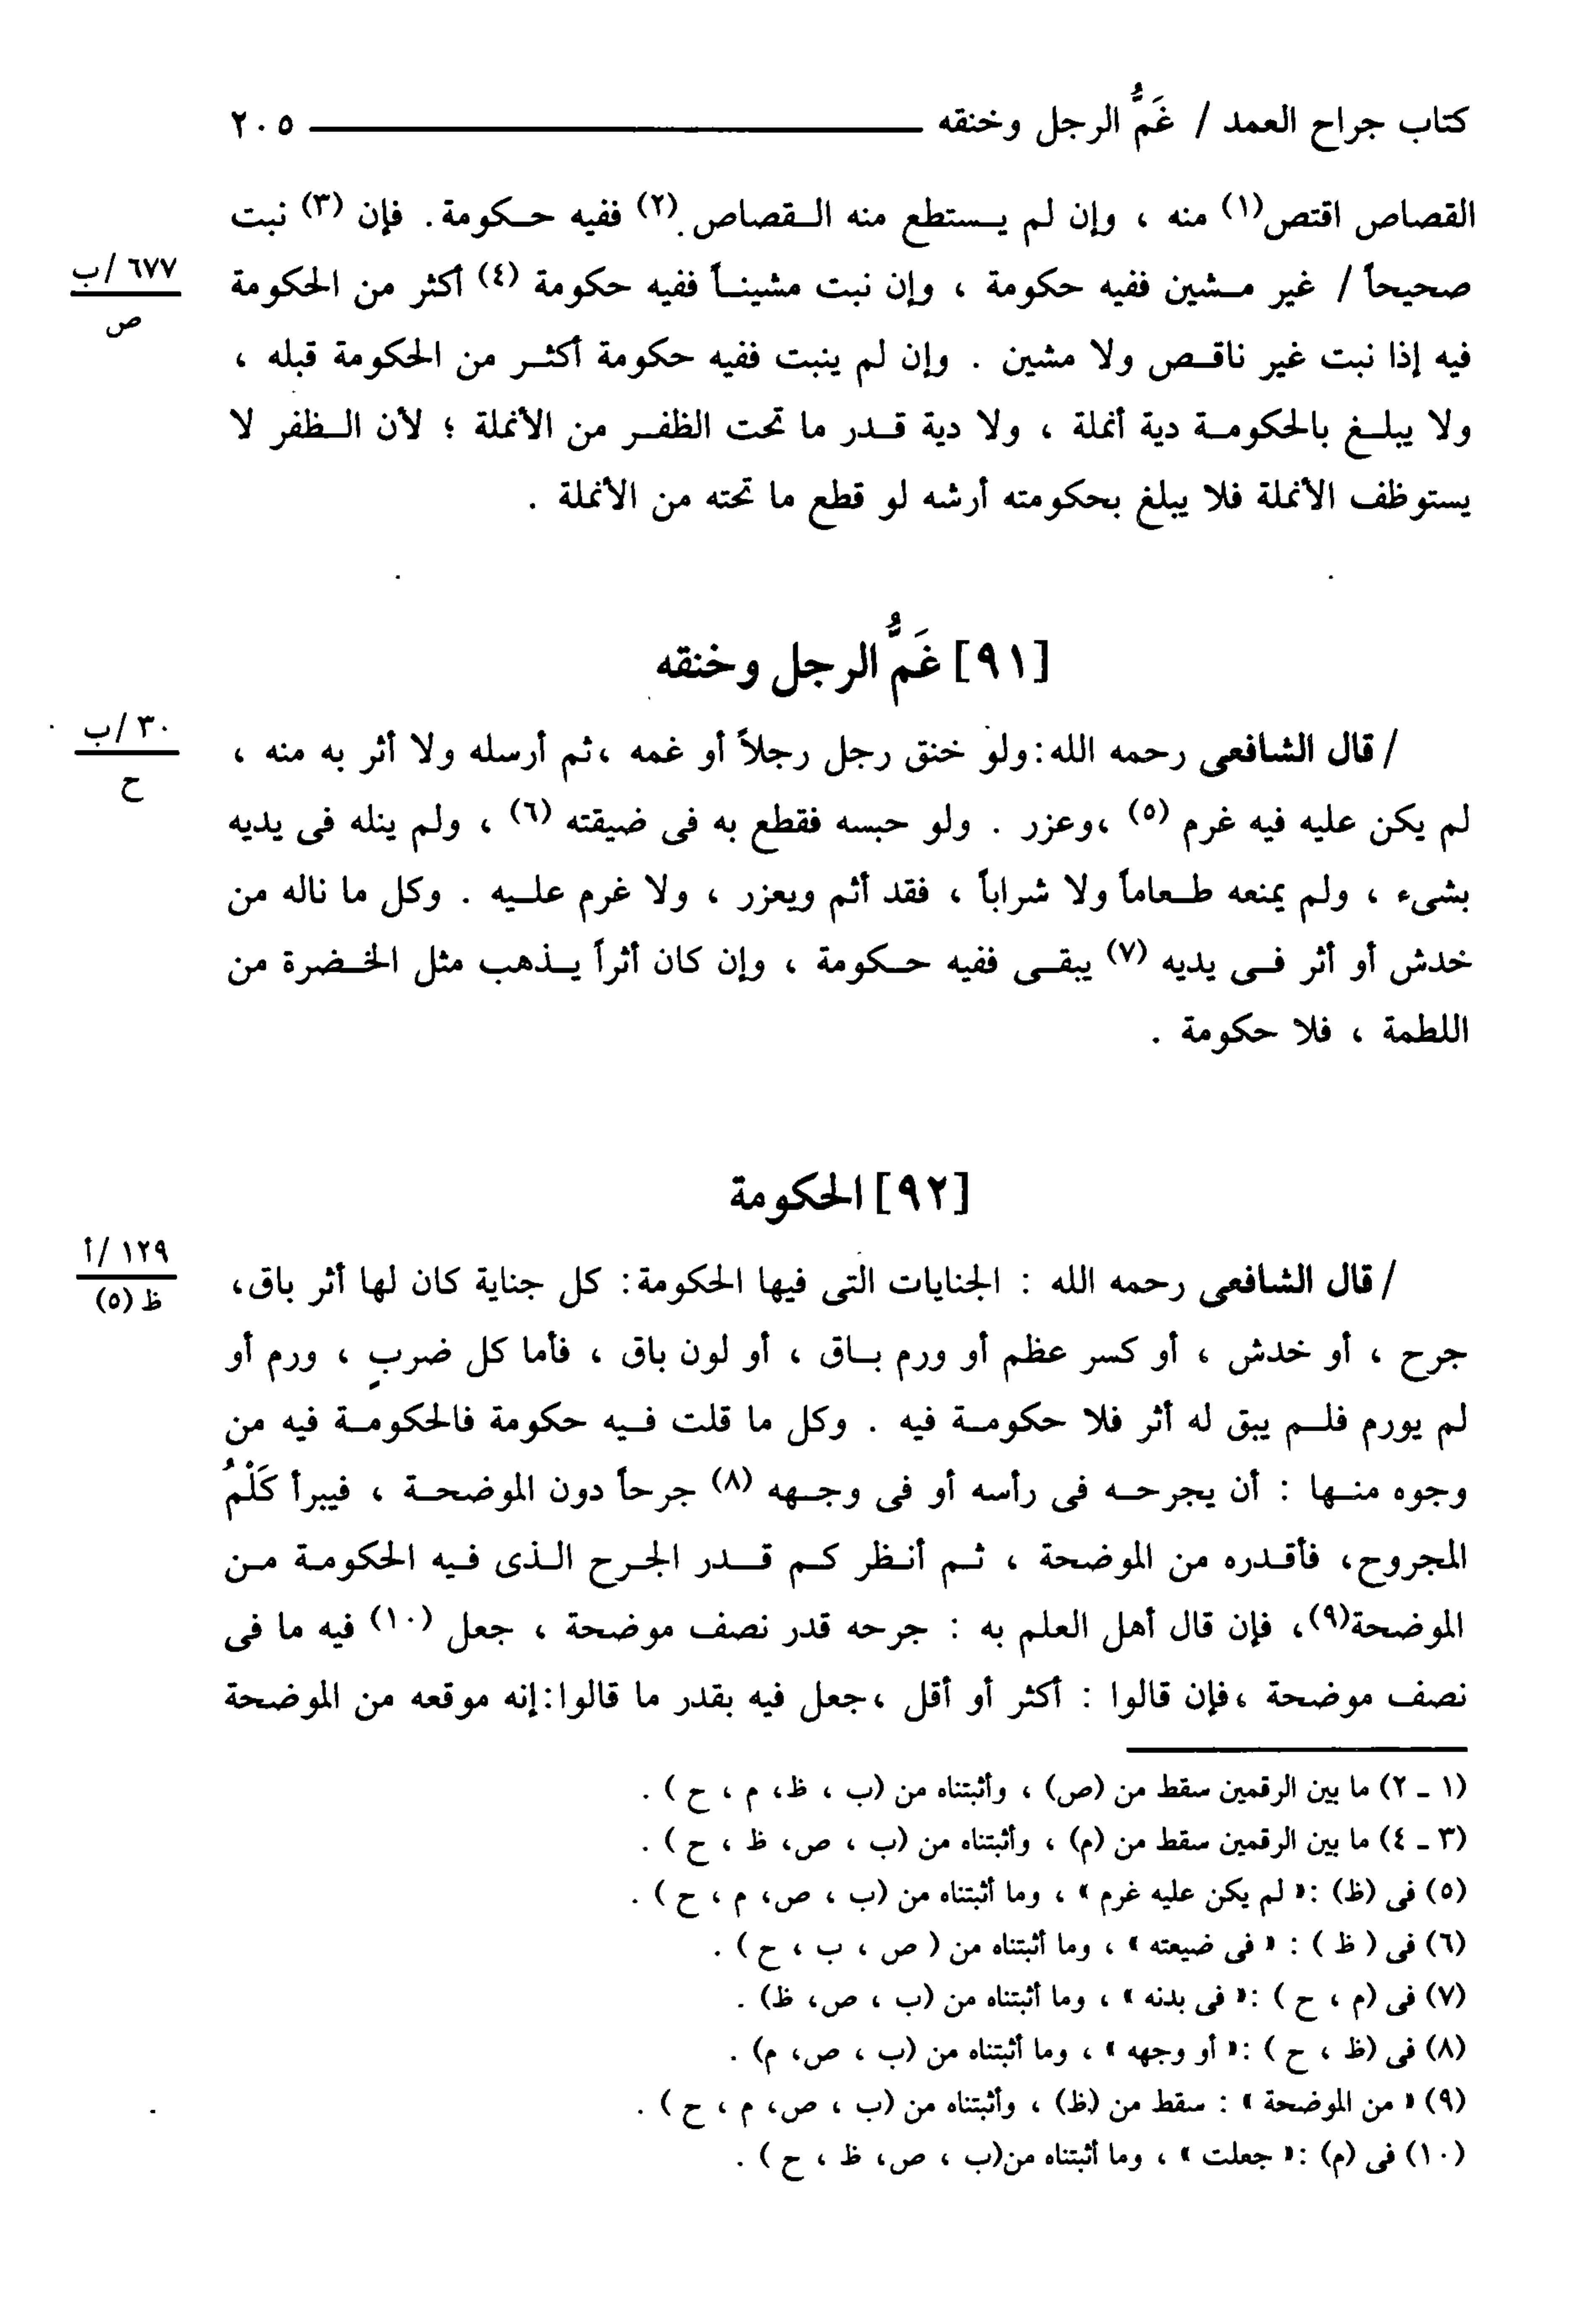 كتاب جراح العمد / غَمُّ الرجل وخنقه ٢٠٥
القصاص اقتص(١) منه ، وإن لم يستطع منه القصاص (٢) ففيه حكومة . فإن (٣) نبت
صحيحاً / غير مشين ففيه حكومة ، وإن نبت مشيناً ففيه حكومة (٤) أكثر من الحكومة
٦٧٧ /ب
ص
فيه إذا نبت غير ناقص ولا مشين . وإن لم ينبت ففيه حكومة أكثر من الحكومة قبله ،
ولا يبلغ بالحكومة دية أنملة ، ولا دية قدر ما تحت الظفر من الأنملة ؛ لأن الظفر لا
يستوظف الأنملة فلا يبلغ بحكومته أرشه لو قطع ما تحته من الأنملة .
[٩١] غَمُّ الرجل وخنقه
/ قال الشافعى رحمه الله : ولو خنق رجل رجلاً أو غمه ، ثم أرسله ولا أثر به منه ،
٣٠ /ب
ح
لم يكن عليه فيه غرم (٥) ، وعزر . ولو حبسه فقطع به فى ضيقته (٦) ، ولم ينله فى يديه
بشىء ، ولم يمنعه طعاماً ولا شراباً ، فقد أثم ويعزر ، ولا غرم عليه . وكل ما ناله من
خدش أو أثر فى يديه (٧) يبقى ففيه حكومة ، وإن كان أثراً يذهب مثل الخضرة من
اللطمة ، فلا حكومة .
[٩٢] الحكومة
/ قال الشافعى رحمه الله : الجنايات التى فيها الحكومة : كل جناية كان لها أثر باق،
١٢٩ /أ
ظ (٥)
جرح ، أو خدش ، أو كسر عظم أو ورم باق ، أو لون باق ، فأما كل ضربٍ ، ورم أو
لم يورم فلم يبق له أثر فلا حكومة فيه . وكل ما قلت فيه حكومة فالحكومة فيه من
وجوه منها : أن يجرحه فى رأسه أو فى وجهه (٨) جرحاً دون الموضحة ، فيبرأ كَلْمُ
المجروح، فأقدره من الموضحة ، ثم أنظر كم قدر الجرح الذى فيه الحكومة من
الموضحة(٩)، فإن قال أهل العلم به : جرحه قدر نصف موضحة ، جعل (١٠) فيه ما فى
نصف موضحة ، فإن قالوا : أكثر أو أقل ، جعل فيه بقدر ما قالوا : إنه موقعه من الموضحة
(١ ـ ٢) ما بين الرقمين سقط من (ص) ، وأثبتناه من (ب ، ظ، م ، ح ) .
(٣ ـ ٤) ما بين الرقمين سقط من (م) ، وأثبتناه من (ب ، ص، ظ ، ح ) .
(٥) فى (ظ) : « لم يكن عليه غرم » ، وما أثبتناه من (ب ، ص، م ، ح ) .
(٦) فى ( ظ ) : « فى ضيعته » ، وما أثبتناه من ( ص ، ب ، ح ) .
(٧) فى (م ، ح ) : « فى بدنه » ، وما أثبتناه من (ب ، ص، ظ) .
(٨) فى (ظ ، ح ) : « أو وجهه » ، وما أثبتناه من (ب ، ص، م) .
(٩) « من الموضحة » : سقط من (ظ) ، وأثبتناه من (ب ، ص، م ، ح ) .
(١٠) فى (م) : « جعلت » ، وما أثبتناه من(ب ، ص، ظ ، ح ) .